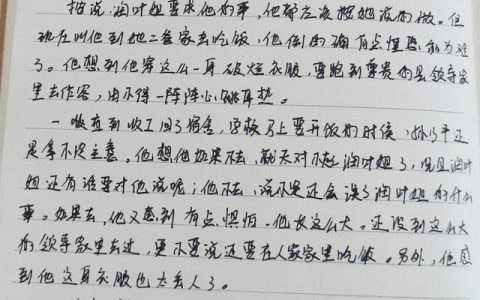 按说，润叶姐要求他的事，他都应该按她说的做。但
现在叫他到她二爸家去吃饭，他倒的确有点惶恐和为难
了。他想到他穿这么一身破烂衣服，要跑到尊贵的县领导家
里去作客，由不得一阵阵心跳耳热。
一直到收工回了宿舍，学校马上要开饭的时候，孙少平还
是拿不定主意。他想他如果不去，就太对不起润叶姐了，况且润叶
姐还有话要对他说呢；他不去，说不定还会误了润叶姐的什么
事。如果去，他又感到有点惧怕。他长这么大，还没到这么大
的领导家里去过，更不要说还要在人家家里吃饭。另外，他感
到他这身衣服也太丢人了。